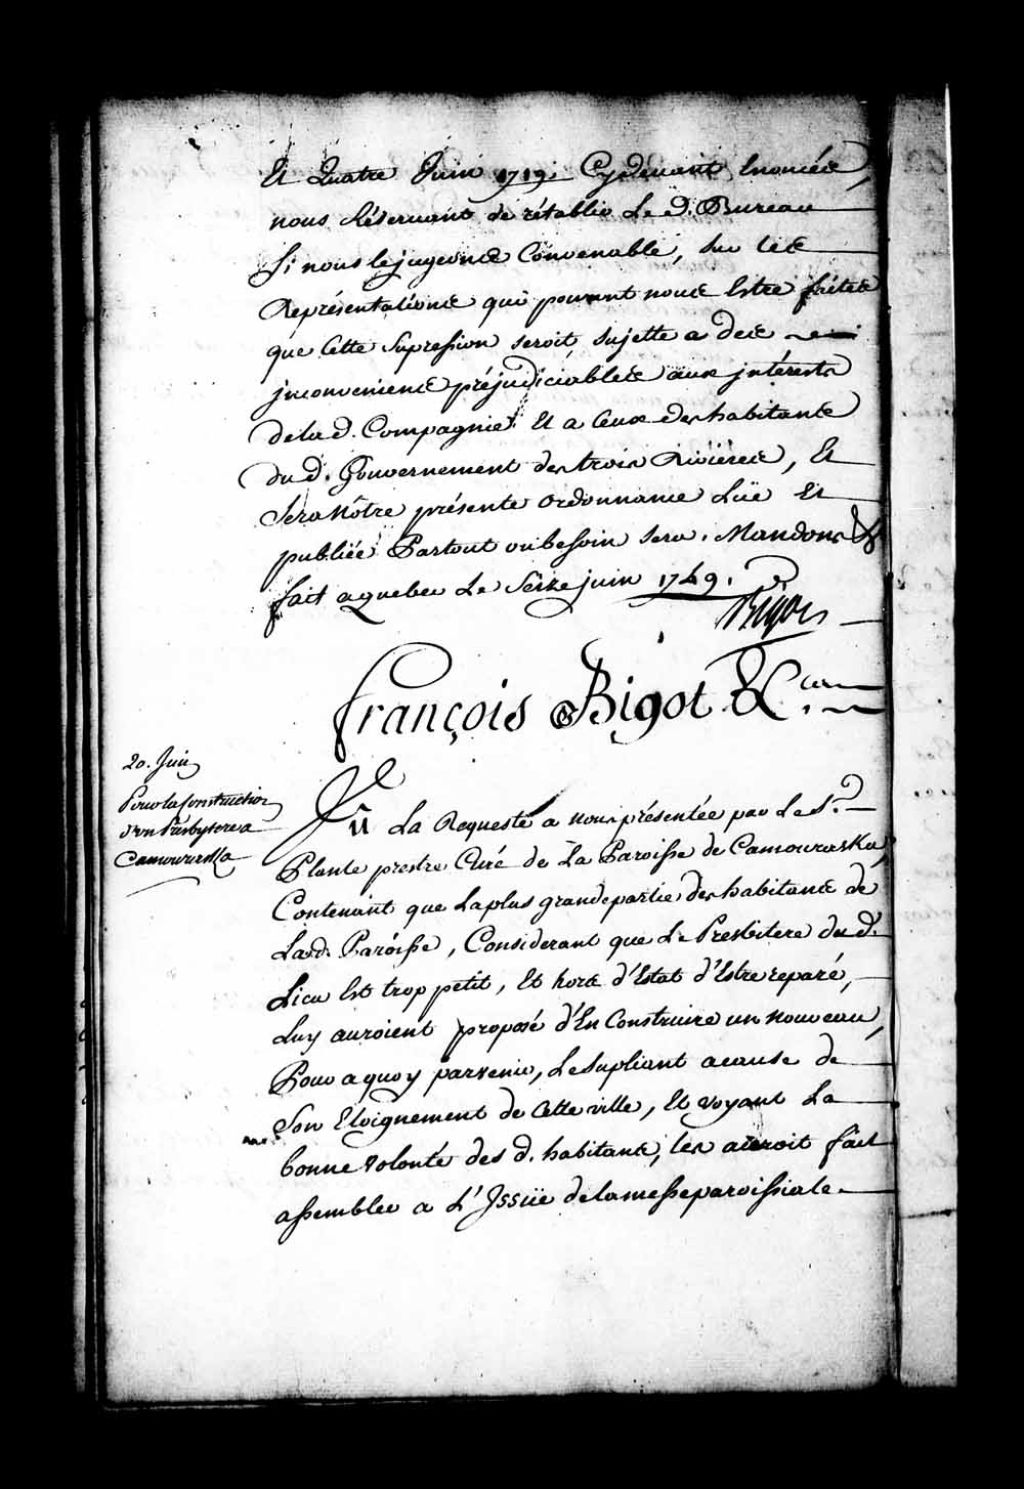 Et Quatre Juin 1719. Cydevant Enoncée,
nous Réservant de rétablir Le d. Bureau
Si nous le jugeons Convenable, sur les
Représentations qui pouront nous Estre faites
que Cette Supression seroit sujette a des
jnconveniens préjudiciables aux jntérests
de la d. Compagnie Et a Ceux des habitants
du d. Gouvernement des trois Rivières, Et
Sera Nôtre présente ordonnance Lüe Et
publiée Partout ou besoin sera. Mandons &
fait a quebec Le Seize juin 1749.
Bigot
françois Bigot &Ca.
20. Juin
Pour la Construction
d'un Présbytere a
Camouraska
Vû La Requeste a nous présentée par Le Sr.
Plante prestre Curé de La Paroisse de Camouraska,
Contenant que La plus grande partie des habitans de
La d. Paroisse, Considerant que Le Presbitere du d.
Lieu Est trop petit, Et hors d'Estat d'Estre reparé,
Luy auroient proposé d'En Construire un nouveau,
Pour a quoy parvenir, Le Supliant a cause de
Son Eloignement de Cette ville, Et voyant La
bonne volonté des d. habitans, les auroit fait
assembler a L'Issüe de la messe paroissiale